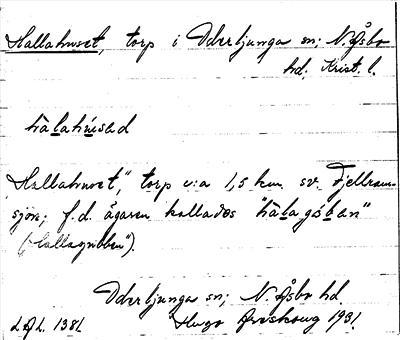 Hallahuset, torp i Oderljunga sn; N. Åsbo
hd; Krist. l.
hàlahúsəd
"Hallahuset", torp c:a 1,5 km. sv. Fjellram-
sjön; f.d. ägaren kallades "hàlagóbən"
("Hallagubben").
Oderljunga sn; N. Åsbo hd.
LAL. 1381. Hugo Areskoug 1931.